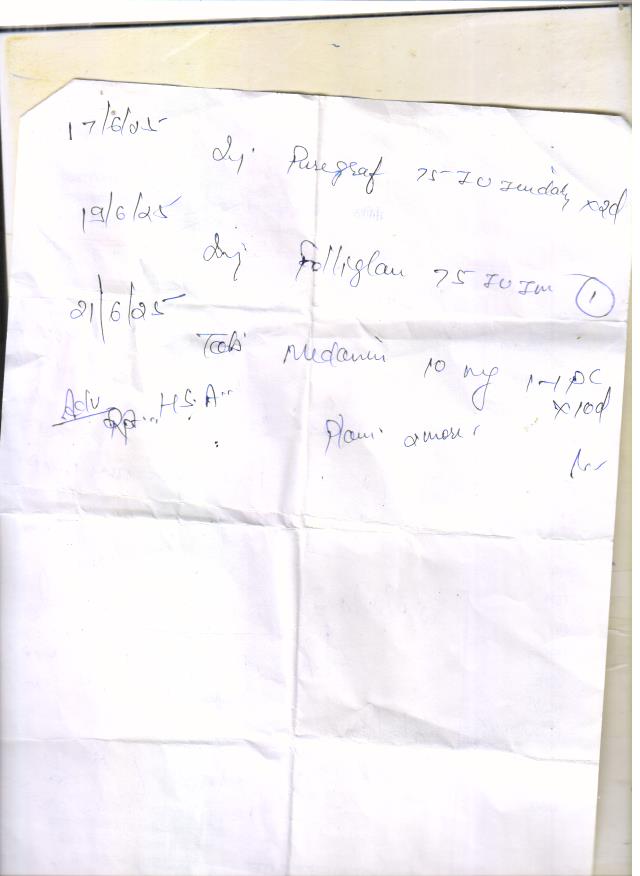 17/6/25
Inj. Puregraf 75 IU Im daily x2d
19/6/25
Inj. Folliglan 75 IU Im 1
21/6/25
Tab 10 mg 1-1 PC
x10d
Adv
Rpt... H.S.A..
Plan: